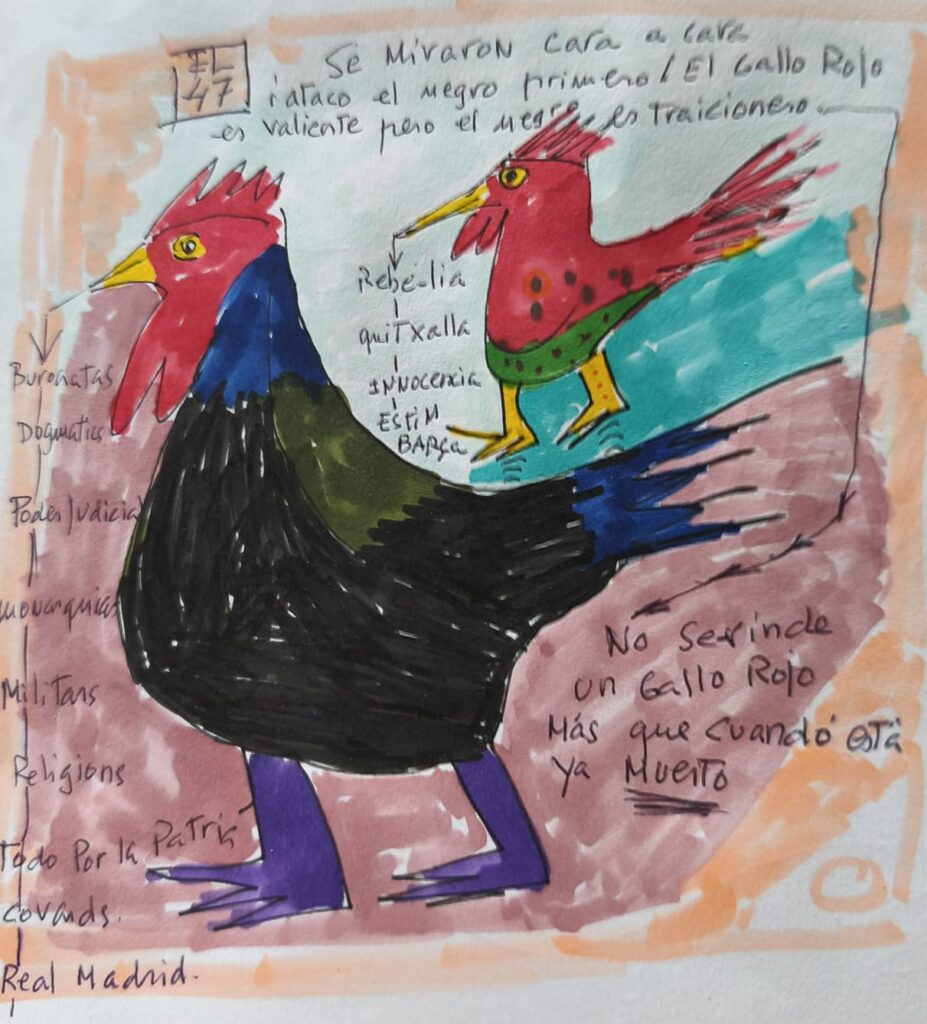 EL
47
Se Miraron cara a cara
i ataco el negro primero / El Gallo Rojo
es valiente pero el negro es Traicionero
Rebe-lia
quiTxalla
INNocencia
ESTiM
BARça
Buronatas
Dogmatics
Poder Judicial
monarquia
Militars
Religions
Todo Por la Patria
covards.
Real Madrid.
No serinde
un Gallo Rojo
Más que cuando está
ya Muerto